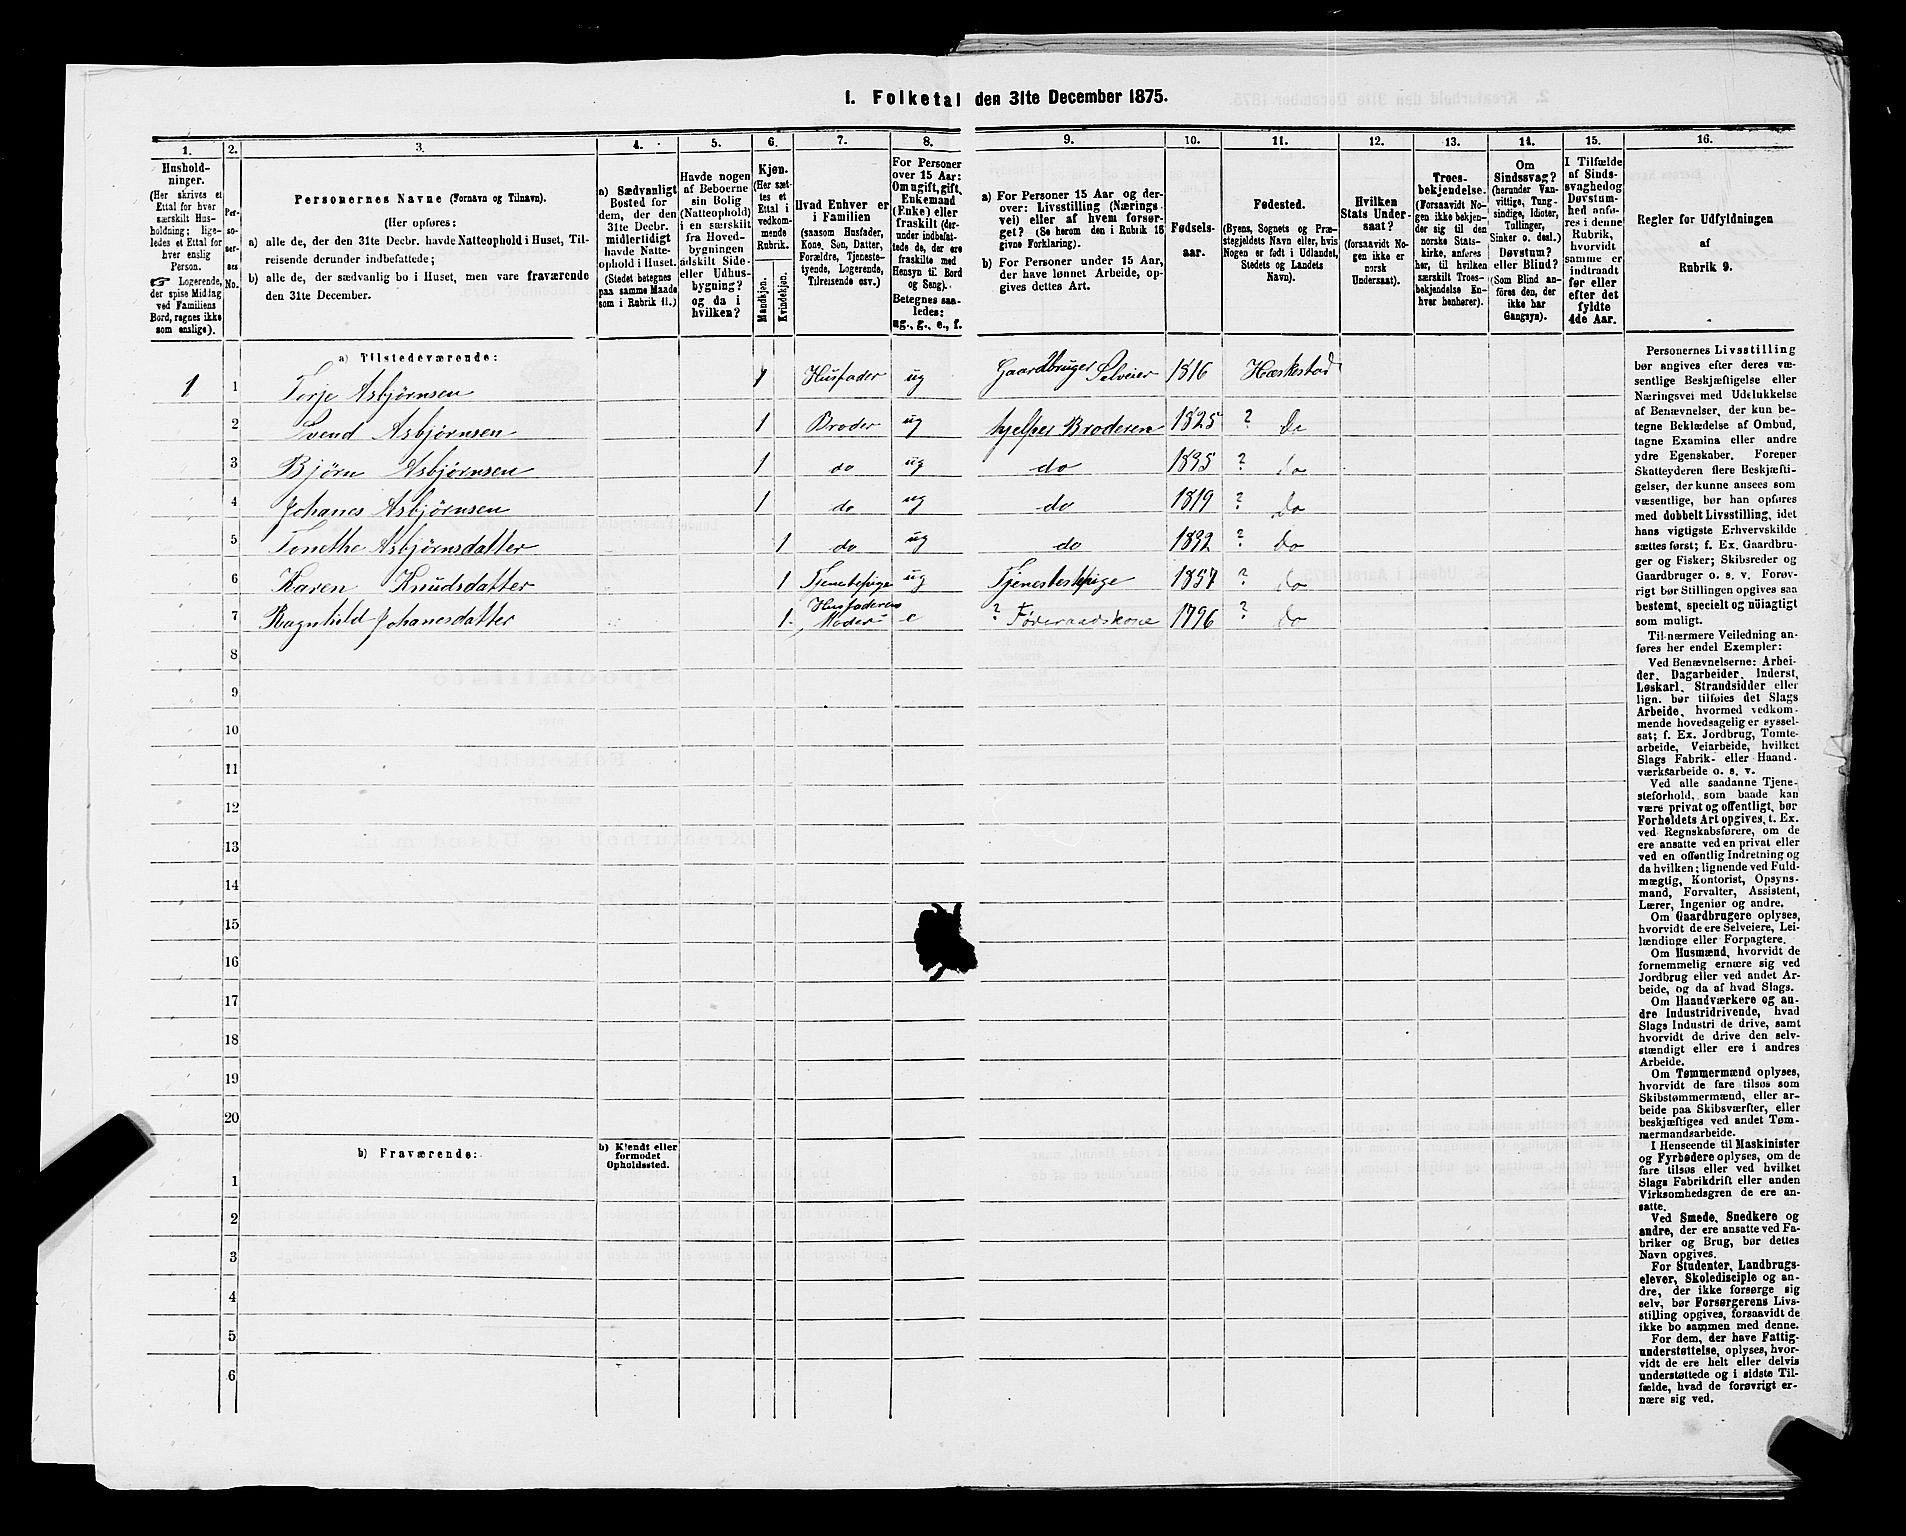 1. Folketal den 31te December 1875.
1.
2.
3.
4.
5.
6.
7.
8.
9.
10.
11.
12.
13.
14.
15.
16.
Hushold-
ninger.
(Her skrives et
Ettal for hver
særskilt Hus-
holdning; lige-
ledes et Ettal for
hver enslig
Person.
☞ Logerende,
der spise Middag
ved Familiens
Bord, regnes ikke
som enslige).
Per-
so-
ner-
nes
No.
Personernes Navne (Fornavn og Tilnavn).
(Her opføres:
a) alle de, der den 31te Decbr. havde Natteophold i Huset, Til-
reisende derunder indbefattede;
b) alle de, der sædvanlig bo i Huset, men vare fraværende
den 31te December.
a) Sædvanligt
Bosted for
dem, der den
31te Decbr.
midlertidigt
havde Natte-
ophold i Huset.
(Stedet betegnes
paa samme Maade
som i Rubrik 11.)
Havde nogen
af Beboerne
sin Bolig
(Natteophold)
i en særskilt
fra Hoved-
bygningen
adskilt Side-
eller Udhus-
bygning?
og da i
hvilken?
Kjøn.
(Her sæt-
tes et
Ettal i
vedkom-
mende
Rubrik.
Mandkjøn.
Kvindekjøn.
Hvad Enhver er
i Familien
(saasom Husfader,
Kone, Søn, Datter,
Forældre, Tjeneste-
tyende, Logerende,
Tilreisende osv.)
For Personer
over 15 Aar:
Om ugift, gift,
Enkemand
(Enke) eller
fraskilt (der-
under indbefat-
tede de, der ere
fraskilte med
Hensyn til Bord
og Seng).
Betegnes saa-
ledes:
ug., g., e., f.
a) For Personer 15 Aar og der-
over: Livsstilling (Nærings-
vei) eller af hvem forsør-
get? (Se herom den i Rubrik 16
givne Forklaring).
b) For Personer under 15 Aar,
der have lønnet Arbeide, op-
gives dettes Art.
Fødsels-
aar.
Fødested.
(Byens, Sognets og Præ-
stegjeldets Navn eller, hvis
Nogen er født i Udlandet,
Stedets og Landets
Navn).
Hvilken
Stats Under-
saat?
(forsaavidt No-
gen ikke er
norsk
Undersaat).
Troes-
bekjendelse.
(Forsaavidt No-
gen ikke bekjen-
der sig til den
norske Stats-
kirke, anføres
her, til hvilken
særskilt Troes-
bekjendelse En-
hver henhører).
Om
Sindssvag?
(herunder Van-
vittige, Tung-
sindige, Idioter,
Sinker o. desl.)
Døvstum?
eller Blind?
(Som Blind an-
føres den, der
ikke har
Gangsyn).
I Tilfælde
af Sinds-
svaghed og
Døvstum-
hed anfø-
res i denne
Rubrik,
hvorvidt
samme er
indtraadt
før eller
efter det
fyldte
4de Aar.
Regler for Udfyldningen
af
Rubrik 9.
a) Tilstedeværende:
1 1 Terje Asbjørnsen 1 Husfader ug Gaardbruger Selveier 1816 Hæskestad
2 Svend Asbjørnsen 1 Broder ug hjelper Broderen 1825 ? Do
3 Bjørn Asbjørnsen 1 do ug do 1835 ? do
4 Johanes Asbjørnsen 1 do ug do 1819 ? Do
5 Tonethe Asbjørnsdatter 1 do ug do 1832 ? Do
6 Karen Knudsdatter 1 Tjenestepige ug Tjenestestepige 1857 ? do
7 Ragnhild Johanesdatter 1 Husfaderens Moder e ? Føderaadskone 1796 ? do
8
9
10
11
12
13
14
15
16
17
18
19
20
b) Fraværende:
b) Kjendt eller
formodet
Opholdssted.
1
2
3
4
5
6
Personernes Livsstilling
bør angives efter deres væ-
sentlige Beskjæftigelse eller
Næringsvei med Udelukkelse
af Benævnelser, der kun be-
tegne Beklædelse af Ombud,
tagne Examina eller andre
ydre Egenskaber. Forener
Skatteyderen flere Beskjæfti-
gelser, der kunne ansees som
væsentlige, bør han opføres
med dobbelt Livsstilling, idet
hans vigtigste Erhvervskilde
sættes først; f. Ex. Gaardbru-
ger og Fisker; Skibsreder og
Gaardbruger o. s. v. Forøv-
rigt bør Stillingen opgives saa
bestemt, specielt og nøiagtigt
som muligt.
Til nærmere Veiledning an-
føres her endel Exempler:
Ved Benævnelserne: Arbei-
der, Dagarbeider, Inderst,
Løskarl, Strandsidder eller
lign. bør tilføies det Slags
Arbeide, hvormed vedkom-
mende hovedsagelig er syssel-
sat; f. Ex. Jordbrug, Tomte-
arbeide, Veiarbeide, hvilket
Slags Fabrik- eller Haand-
værksarbeide o. s. v.
Ved alle saadanne Tjene-
steforhold, som baade kan
være privat og offentligt, bør
Forholdets Art opgives, t. Ex.
ved Regnskabsførere, om de
ere ansatte ved en privat eller
ved en offentlig Indretning og
da hvilken; lignende ved Fuld-
mægtig, Kontorist, Opsyns-
mand, Forvalter, Assistent,
Lærer, Ingeniør og andre.
Om Gaardbrugere oplyses,
hvorvidt de ere Selveiere, Lei-
lændinge eller Forpagtere.
Om Husmænd, hvorvidt de
fornemmelig ernære sig ved
Jordbrug eller ved andet Ar-
beide, og da af hvad Slags.
Om Haandværkere og an-
dre Industridrivende, hvad
Slags Industri de drive, samt
hvorvidt de drive den selv-
stændigt eller ere i andres
Arbeide.
Om Tømmermænd oplyses,
hvorvidt de fare tilsøs som
Skibstømmermænd, eller ar-
beide paa Skibsværfter, eller
beskjæftiges ved andet Tøm-
mermandsarbeide.
I Henseende til Maskinister
og Fyrbødere oplyses, om de
fare tilsøs eller ved hvilket
Slags Fabrikdrift eller anden
Virksomhedsgren de ere an-
satte.
Ved Smede, Snedkere og
andre, der ere ansatte ved Fa-
briker og Brug, bør dettes
Navn opgives.
For Studenter, Landbrugs-
elever, Skoledisciple og an-
dre, der ikke forsørge sig
selv, bør Forsørgerens Livs-
stilling opgives, forsaavidt de
ikke bo sammen med denne.
For dem, der have Fattig-
understøttelse, oplyses, hvor-
vidt de ere helt eller delvis
understøttede og i sidste Til-
fælde, hvad de forøvrigt er-
nære sig ved.